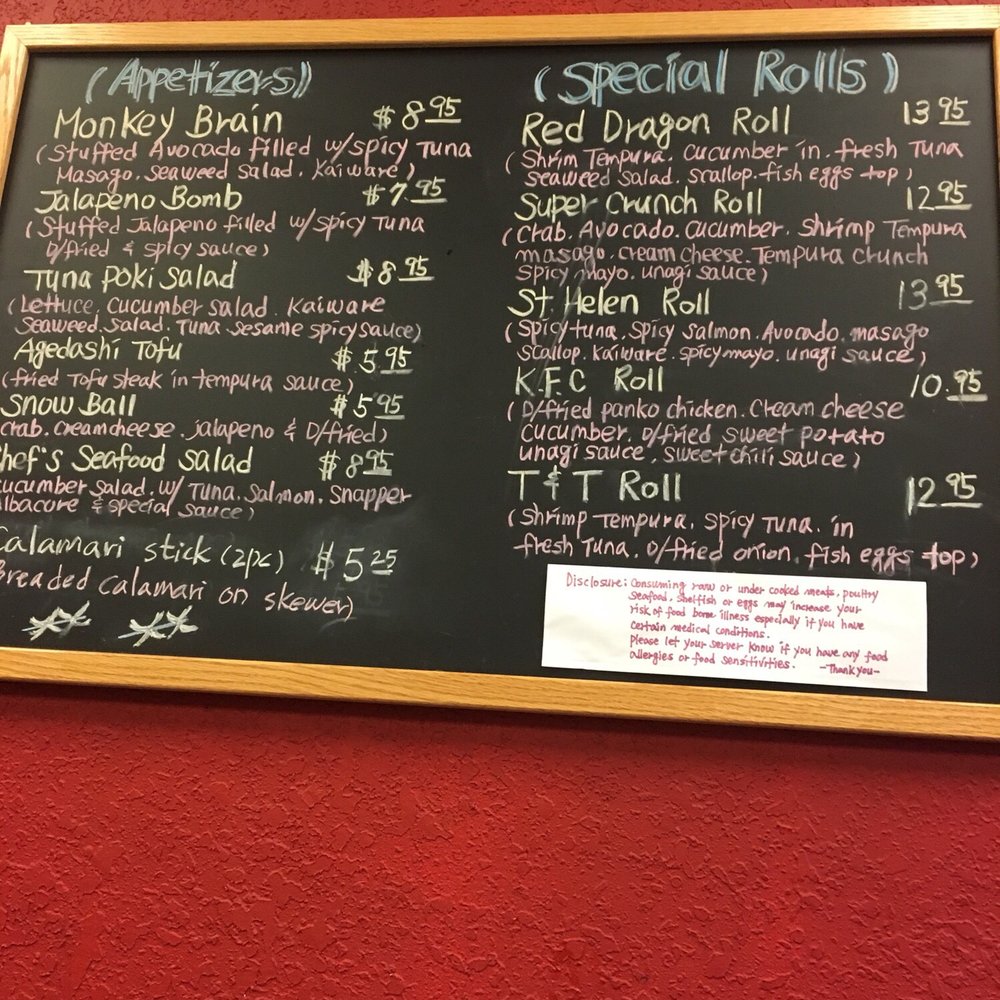 (Appetizers)
Monkey Brain $8.95
(Stuffed Avocado filled w/spicy Tuna
Masago. seaweed salad. Kaiware)
Jalapeno Bomb $7.95
(Stuffed Jalapeno filled w/spicy Tuna
D/fried & spicy sauce)
Tuna Poki Salad $8.95
(Lettuce, Cucumber salad. Kaiware
Seaweed. Salad. Tuna. Sesame spicy sauce)
Agedashi Tofu $5.95
(fried Tofu steak in tempura sauce)
Snow Ball $5.95
Crab. creamcheese. jalapeno & D/fried)
Chef's Seafood Salad $8.95
cucumber Salad. w/ Tuna. Salmon. Snapper
Albacore & special sauce)
Calamari stick (2pc) $5.25
Breaded calamari on skewer)
(Special Rolls)
Red Dragon Roll 13.95
(Shrim Tempura. Cucumber in. fresh Tuna
seaweed salad. scallop. fish eggs top)
Super Crunch Roll 12.95
(Crab. Avocado. cucumber. Shrimp Tempura
masago. cream cheese. Tempura crunch
spicy mayo. unagi sauce)
St. Helen Roll 13.95
(Spicy tuna. Spicy salmon. Avocado. masago
Scallop. Kaiware. spicy mayo. unagi sauce)
K.F.C Roll 10.95
(D/fried panko chicken. Cream cheese
cucumber. D/fried sweet potato
unagi sauce, sweet chili sauce)
T & T Roll 12.95
(Shrimp Tempura. Spicy Tuna. in
fresh Tuna. D/fried onion. fish eggs top)
Disclosure: Consuming raw or under cooked meats, poultry
seafood, shelfish or eggs may increase your
risk of food borne illness especially if you have
certain medical conditions.
Please let your server know if you have any food
allergies or food sensitivities. -Thank you-